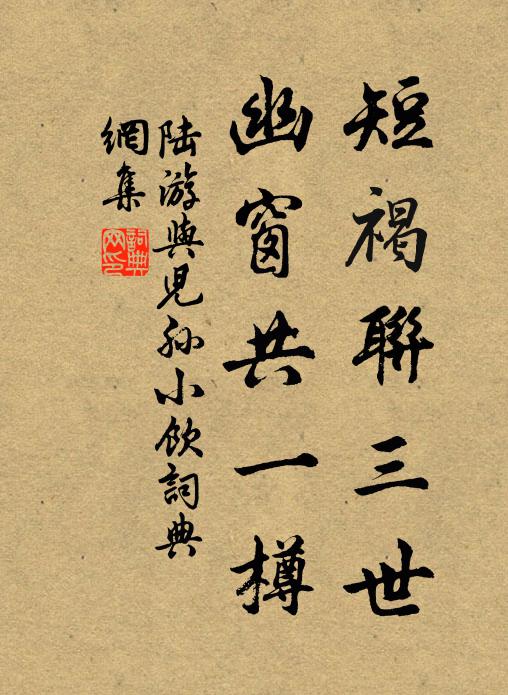 短褐聯三世
幽窗共一樽
陆游與児孙小飲詞典
網集
詞典
网印